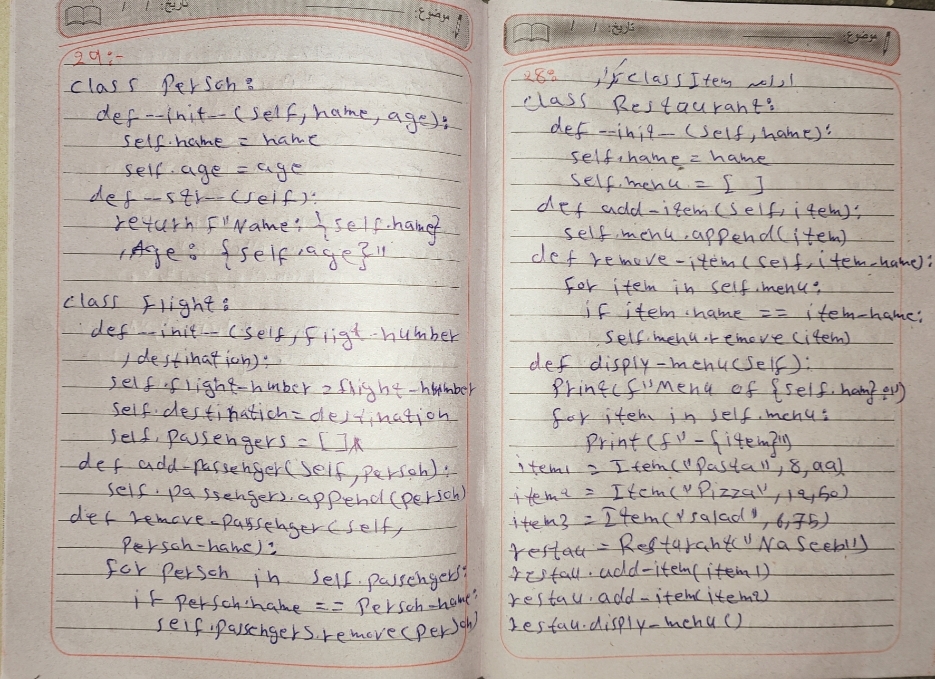 موضوع:
تاریخ: / /
29:-
class Person:
def __init__(self, name, age):
self.name = name
self.age = age
def __str__(self):
return f"Name: {self.name}
,Age: {self.age}"
class Flight:
def __init__(self, fligt-number
, destination):
self.flight-number = flight-number
self.destination = destination
self.passengers = [ ]
def add-passenger(self, person):
self.passengers.append(person)
def remove-passenger(self,
person-name):
for person in self.passengers:
if person.name == person-name:
self.passengers.remove(person)
موضوع:
تاریخ: / /
28: ادامه class Item
class Restaurant:
def __init__(self, name):
self.name = name
self.menu = [ ]
def add-item(self, item):
self.menu.append(item)
def remove-item(self, item-name):
for item in self.menu:
if item.name == item-name:
self.menu.remove(item)
def disply-menu(self):
print(f"Menu of {self.name}:")
for item in self.menu:
print(f"-{item}")
item1 = Item("Pasta", 8,99)
item2 = Item("Pizza", 12,50)
item3 = Item("salad", 6,75)
restau = Resturant("Naseeb")
restau.add-item(item1)
restau.add-item(item2)
restau.disply-menu()